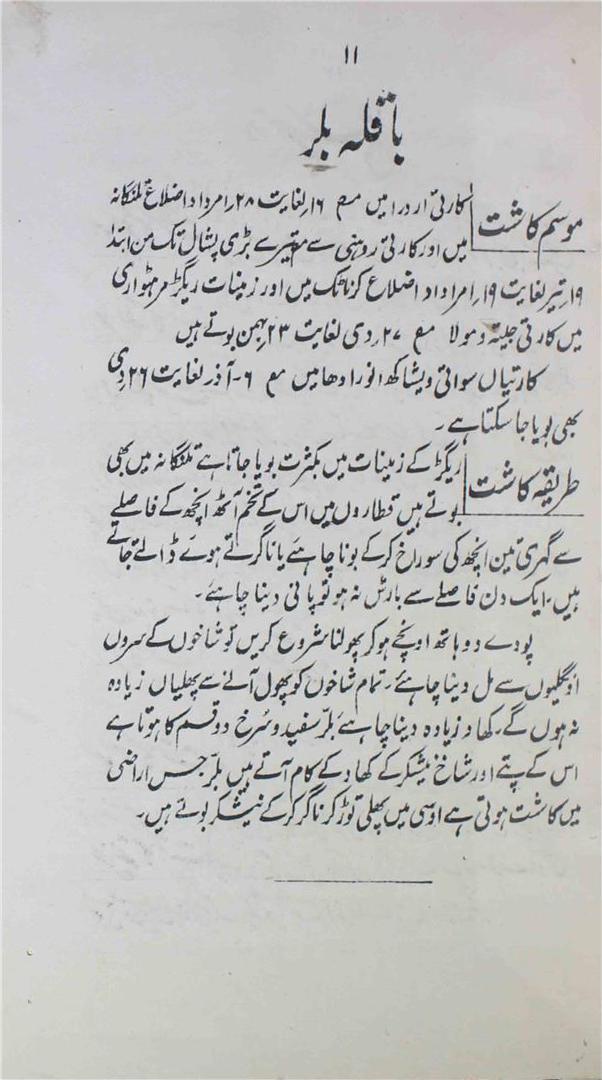 ۱۱
باقلہ بلر
موسم کاشت
کارتی اردرا میں مع ۱۶؍ لغایت ۲۸؍ امرداد اضلاع تلنگانہ
میں اور کارتی روہنی سے بڑی پشال تک من ابتدا
۱۹؍ تیر لغایت ۱۹؍ امرداد اضلاع کرناٹک میں اور زمینات ریگڑ مرہٹواری
میں کارتی جیٹہ و مولا مع ۲۷؍ دی لغایت ۲۳؍ بہمن بوتے ہیں
کارتیاں سواتی ویشاکھ انورادھا میں مع ۶۔ آذر لغایت ۲۶؍ دی
بھی بویا جا سکتا ہے۔
طریقہ کاشت
ریگڑ کے زمینات میں بکثرت بویا جاتا ہے تلنگانہ میں بھی
بوتے ہیں قطاروں میں اس کے تخم آٹھ انچھ کے فاصلے
سے گہری تین انچھ کی سوراخ کر کے بونا چاہئے یا ناگرتے ہوے ڈالے جاتے
ہیں۔ ایک دن فاصلے سے بارش نہ ہو تو پانی دینا چاہئے۔
پودے دو ہاتھ اونچے ہو کر پھولنا شروع کریں تو شاخوں کے سروں
اونگلیوں سے مل دینا چاہئے۔ تمام شاخوں کو پھول آنے سے پھلیاں زیادہ
نہ ہوں گے۔ کھاد زیادہ دینا چاہئے بلر سفید و سرخ دو قسم کا ہوتا ہے
اس کے پتے اور شاخ نیشکر کے کھاد کے کام آتے ہیں بلر جس اراضی
میں کاشت ہوتی ہے اوسی میں پھلی توڑ کر ناگر کر کے نیشکر بوتے ہیں۔